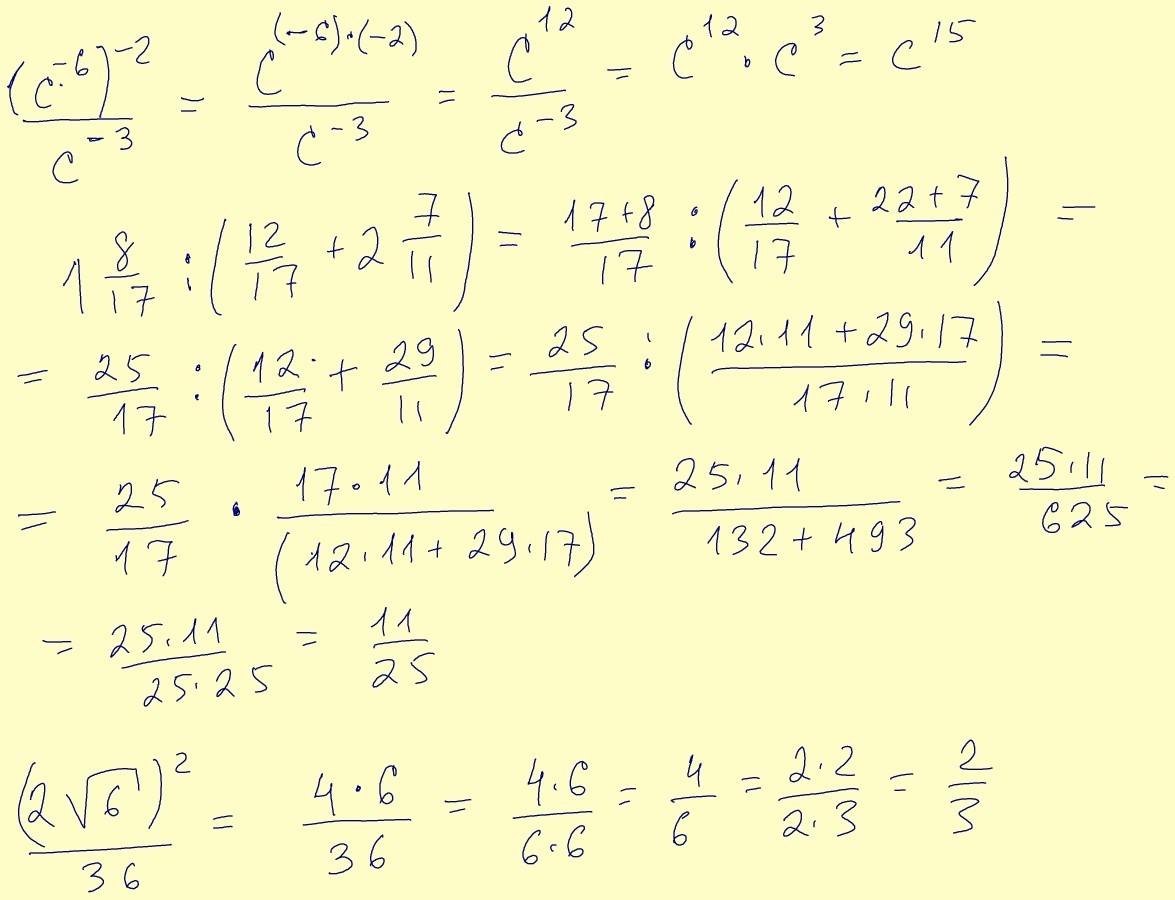 (c^-6)^-2 / c^-3 = c^(-6)·(-2) / c^-3 = c^12 / c^-3 = c^12 · c^3 = c^15
1 8/17 : (12/17 + 2 7/11) = 17+8/17 : (12/17 + 22+7/11) =
= 25/17 : (12/17 + 29/11) = 25/17 : (12·11 + 29·17 / 17·11) =
= 25/17 · 17·11 / (12·11 + 29·17) = 25·11 / 132 + 493 = 25·11 / 625 =
= 25·11 / 25·25 = 11/25
(2√6)^2 / 36 = 4·6 / 36 = 4·6 / 6·6 = 4/6 = 2·2 / 2·3 = 2/3